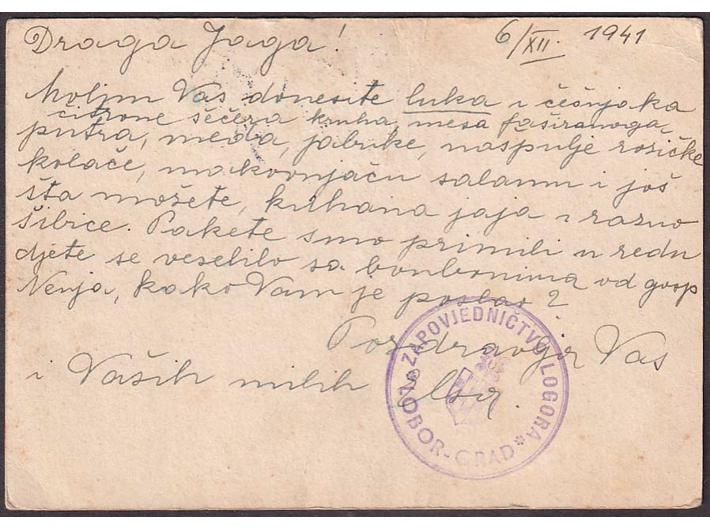 Draga Jaga!
6/XII. 1941
Molim Vas donesite luka i češnjaka
citrone šećera kruha, mesa faširanoga
putra, meda, jabuke, naspulje rozičke
kolače, makovnjaču salamu i još
šta možete, kuhana jaja i razno
šibice. Pakete smo primili u redu
djete se veselilo sa bonbonima od gosp
Nenja, kako Vam je poslao?
Pozdravlja Vas
i Vaših milih
ZAPOVJEDNIČTVO LOGORA
LOBOR-GRAD